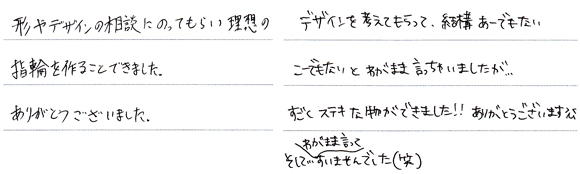 形やデザインの相談にのってもらい理想の
指輪を作ることできました。
ありがとうございました。
デザインを考えてもらって、結構あーでもない
こーでもないとわがまま言っちゃいましたが…
すごくステキな物ができました!! ありがとうございます
わがまま言って
そして…すいませんでした(笑)